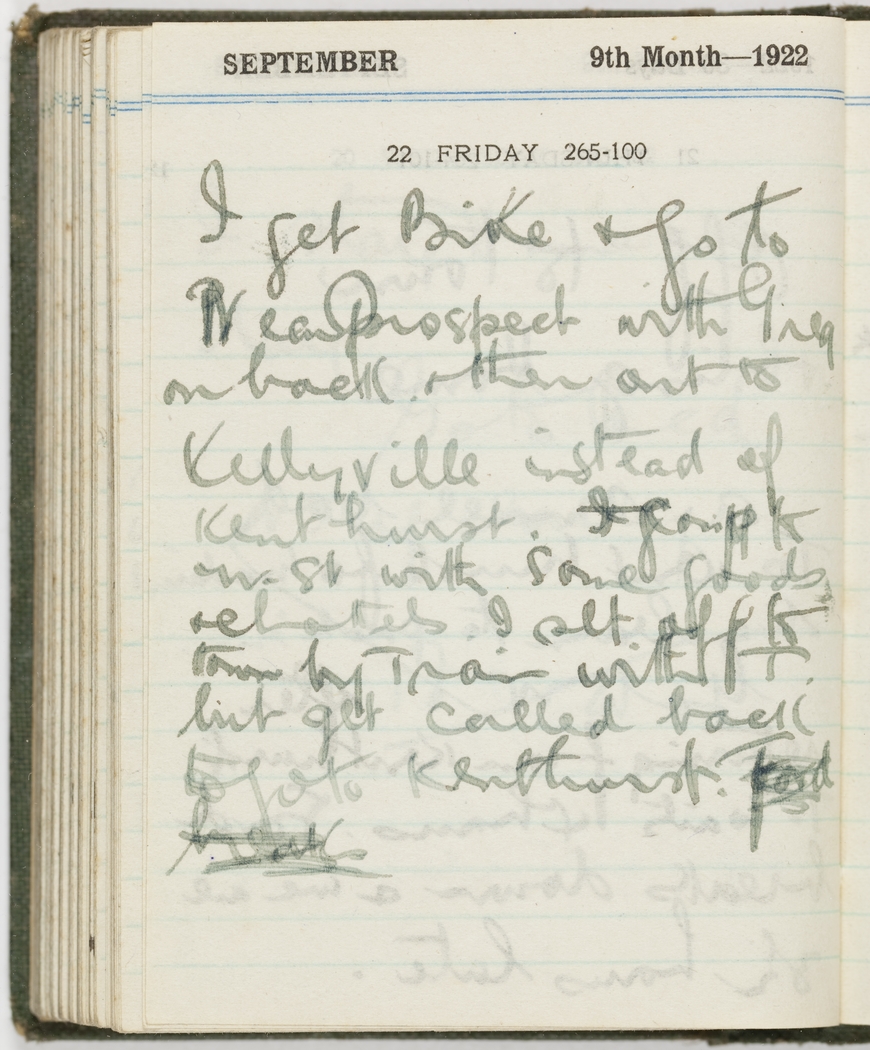 SEPTEMBER 9th Month—1922
22 FRIDAY 265-100
I get Bike & go to
Near Prospect with Greg
on back. & then out to
Kellyville instead of
Kenthurst. I go up to
with some goods
& chattels. I set off to
town by Train with T.
but get called back
to go to Kenthurst. Ford